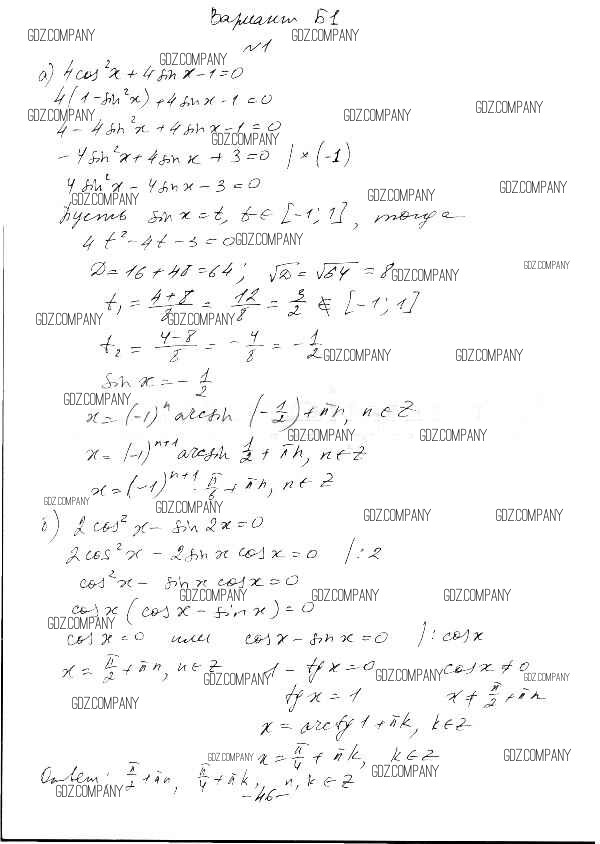 Вариант Б1
GDZ.COMPANY GDZ.COMPANY
№1
GDZ.COMPANY
а) 4cos²x + 4sin x - 1 = 0
4(1 - sin²x) + 4sin x - 1 = 0
GDZ.COMPANY GDZ.COMPANY GDZ.COMPANY
4 - 4sin²x + 4sin x - 1 = 0
GDZ.COMPANY
-4sin²x + 4sin x + 3 = 0 / × (-1)
4sin²x - 4sin x - 3 = 0
GDZ.COMPANY GDZ.COMPANY GDZ.COMPANY
Пусть sin x = t, t ∈ [-1; 1], тогда
4t² - 4t - 3 = 0 GDZ.COMPANY
D = 16 + 48 = 64; √D = √64 = 8 GDZ.COMPANY GDZ.COMPANY
t₁ = (4+8)/8 = 12/8 = 3/2 ∉ [-1; 1]
GDZ.COMPANY GDZ.COMPANY
t₂ = (4-8)/8 = -4/8 = -1/2
GDZ.COMPANY GDZ.COMPANY
sin x = -1/2
GDZ.COMPANY
x = (-1)ⁿ arcsin (-1/2) + πn, n ∈ Z
GDZ.COMPANY GDZ.COMPANY
x = (-1)ⁿ⁺¹ arcsin 1/2 + πn, n ∈ Z
x = (-1)ⁿ⁺¹ · π/6 + πn, n ∈ Z
GDZ.COMPANY GDZ.COMPANY GDZ.COMPANY GDZ.COMPANY
б) 2cos²x - sin 2x = 0
2cos²x - 2sin x cos x = 0 /:2
cos²x - sin x cos x = 0
GDZ.COMPANY GDZ.COMPANY GDZ.COMPANY
cos x (cos x - sin x) = 0
GDZ.COMPANY
cos x = 0 или cos x - sin x = 0 /: cos x
x = π/2 + πn, n ∈ Z 1 - tg x = 0 cos x ≠ 0
GDZ.COMPANY GDZ.COMPANY GDZ.COMPANY
tg x = 1 x ≠ π/2 + πn
GDZ.COMPANY
x = arctg 1 + πk, k ∈ Z
GDZ.COMPANY x = π/4 + πk, k ∈ Z GDZ.COMPANY
GDZ.COMPANY
Ответ: π/2 + πn, π/4 + πk, n, k ∈ Z
GDZ.COMPANY -46-